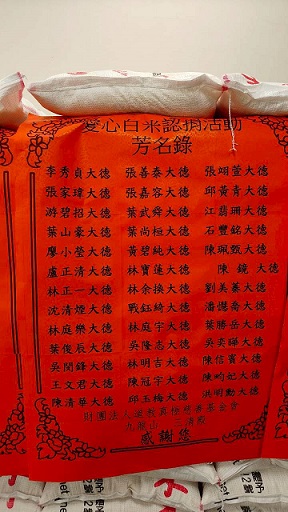 愛心白米認捐活動
芳名錄
李秀貞大德 張善泰大德 張翊萱大德
張家瑋大德 張嘉容大德 邱黃青大德
游碧招大德 葉武舜大德 江翡珊大德
葉山豪大德 葉尚桓大德 石豐銘大德
廖小瑩大德 黃碧純大德 陳珮甄大德
盧正清大德 林寶蓮大德 陳 鏡 大德
林正一大德 林余換大德 劉美蓁大德
沈清煙大德 戰鈺綺大德 潘燿斋大德
林庭樂大德 林庭宇大德 葉勝岳大德
葉俊辰大德 吳隆志大德 吳奕璐大德
吳閔鋒大德 林明吉大德 陳信賓大德
王文君大德 陳冠宇大德 陳昫妃大德
陳清華大德 邱玉梅大德 洪明勳大德
財團法人道教真修慈善基金會
九龍山 三清殿
感謝您